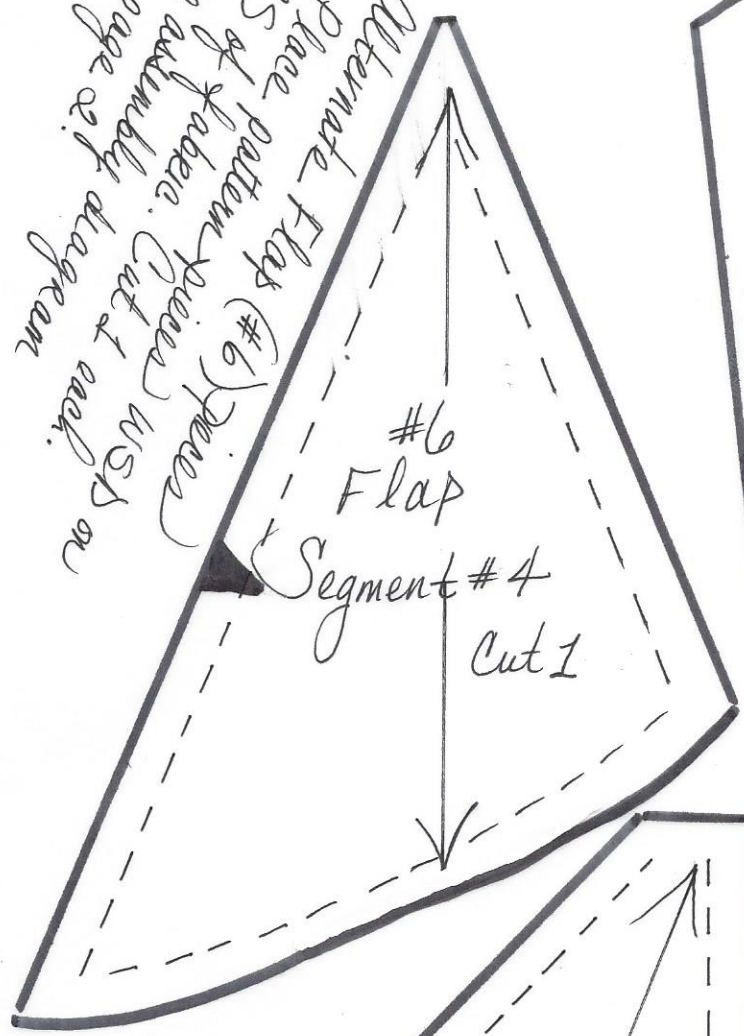 Alternate Flap (#6) pieces
Place pattern pieces WSD on
S of fabric. Cut 1 each.
assembly diagram
age 2!
#6
Flap
Segment #4
Cut 1